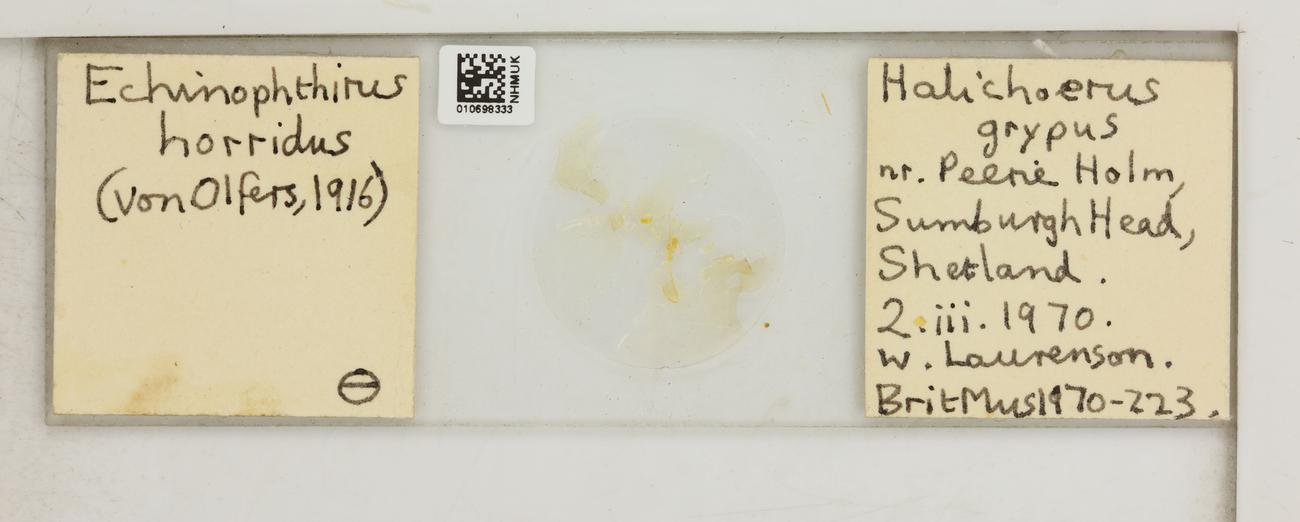 Echinophthirus
horridus
(von Olfers, 1916)
⊖
NHMUK
010698333
Halichoerus
grypus
nr. Peerie Holm,
Sumburgh Head,
Shetland.
2.iii.1970.
W. Laurenson.
Brit Mus 1970-223.